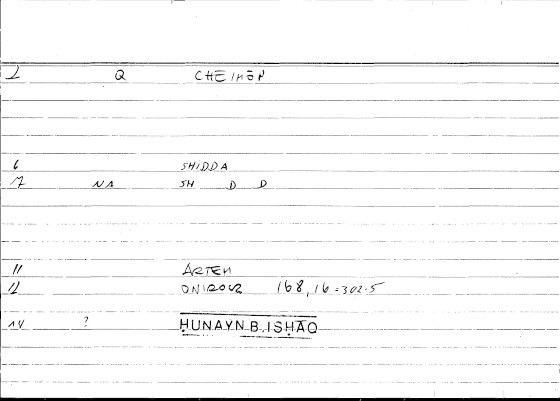 2 Q CHEIMŌN
6 SHIDDA
7 NA SH D D
11 ARTEM
12 ONIROCR 168,16=302.5
14 ? ḤUNAYN B. ISḤĀQ